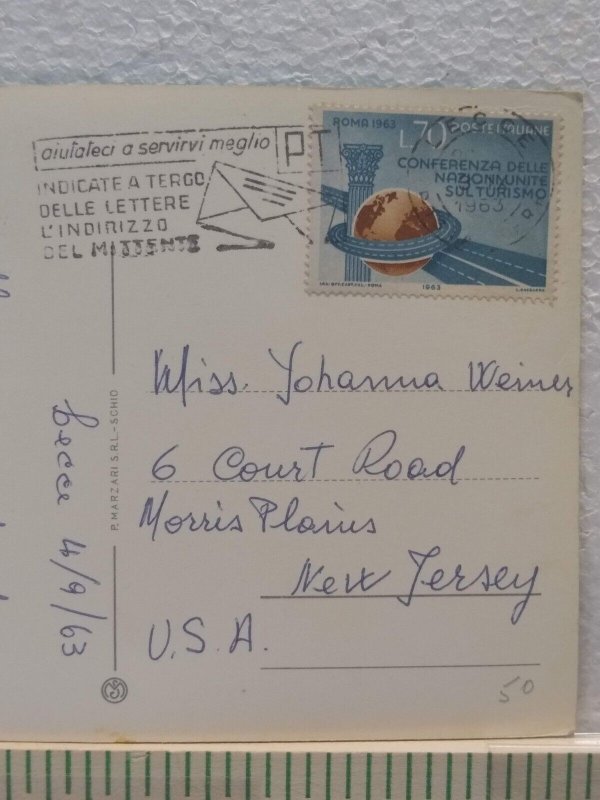 aiutateci a servirvi meglio
PT
INDICATE A TERGO
DELLE LETTERE
L'INDIRIZZO
DEL MITTENTE
ROMA 1963
L.70 POSTE ITALIANE
CONFERENZA DELLE
NAZIONI UNITE
SUL TURISMO
1963
1963
Miss. Johanna Weiner
6 Court Road
Morris Plains
New Jersey
U.S.A.
P. MARZARI S.R.L.-SCHIO
Lecce 4/9/63
50